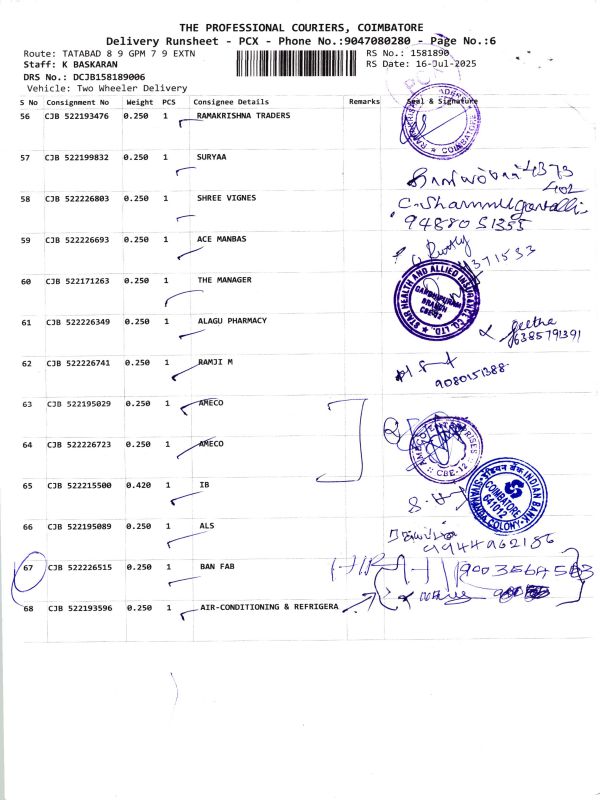 THE PROFESSIONAL COURIERS, COIMBATORE
Delivery Runsheet - PCX - Phone No.:9047080280 - Page No.:6
Route: TATABAD 8 9 GPM 7 9 EXTN
RS No.: 1581890
Staff: K BASKARAN
RS Date: 16-Jul-2025
DRS No.: DCJB158189006
Vehicle: Two Wheeler Delivery
S No Consignment No Weight PCS Consignee Details Remarks Seal & Signature
56 CJB 522193476 0.250 1 RAMAKRISHNA TRADERS
COIMBATORE
57 CJB 522199832 0.250 1 SURYAA
4373
402
58 CJB 522226803 0.250 1 SHREE VIGNES
94880 51355
59 CJB 522226693 0.250 1 ACE MANBAS
371533
60 CJB 522171263 0.250 1 THE MANAGER
STAR HEALTH AND ALLIED INSURANCE CO. LTD.
GANDHIPURAM
BRANCH
CBE-12
61 CJB 522226349 0.250 1 ALAGU PHARMACY
geetha
6385791391
62 CJB 522226741 0.250 1 RAMJI M
9080151388
63 CJB 522195029 0.250 1 AMECO
64 CJB 522226723 0.250 1 AMECO
AMECO ENTERPRISES
CBE-12
65 CJB 522215500 0.420 1 IB
इंडियन बैंक INDIAN BANK
COIMBATORE
641012
SIVANANDA COLONY
66 CJB 522195089 0.250 1 ALS
9944962186
67 CJB 522226515 0.250 1 BAN FAB
68 CJB 522193596 0.250 1 AIR-CONDITIONING & REFRIGERA